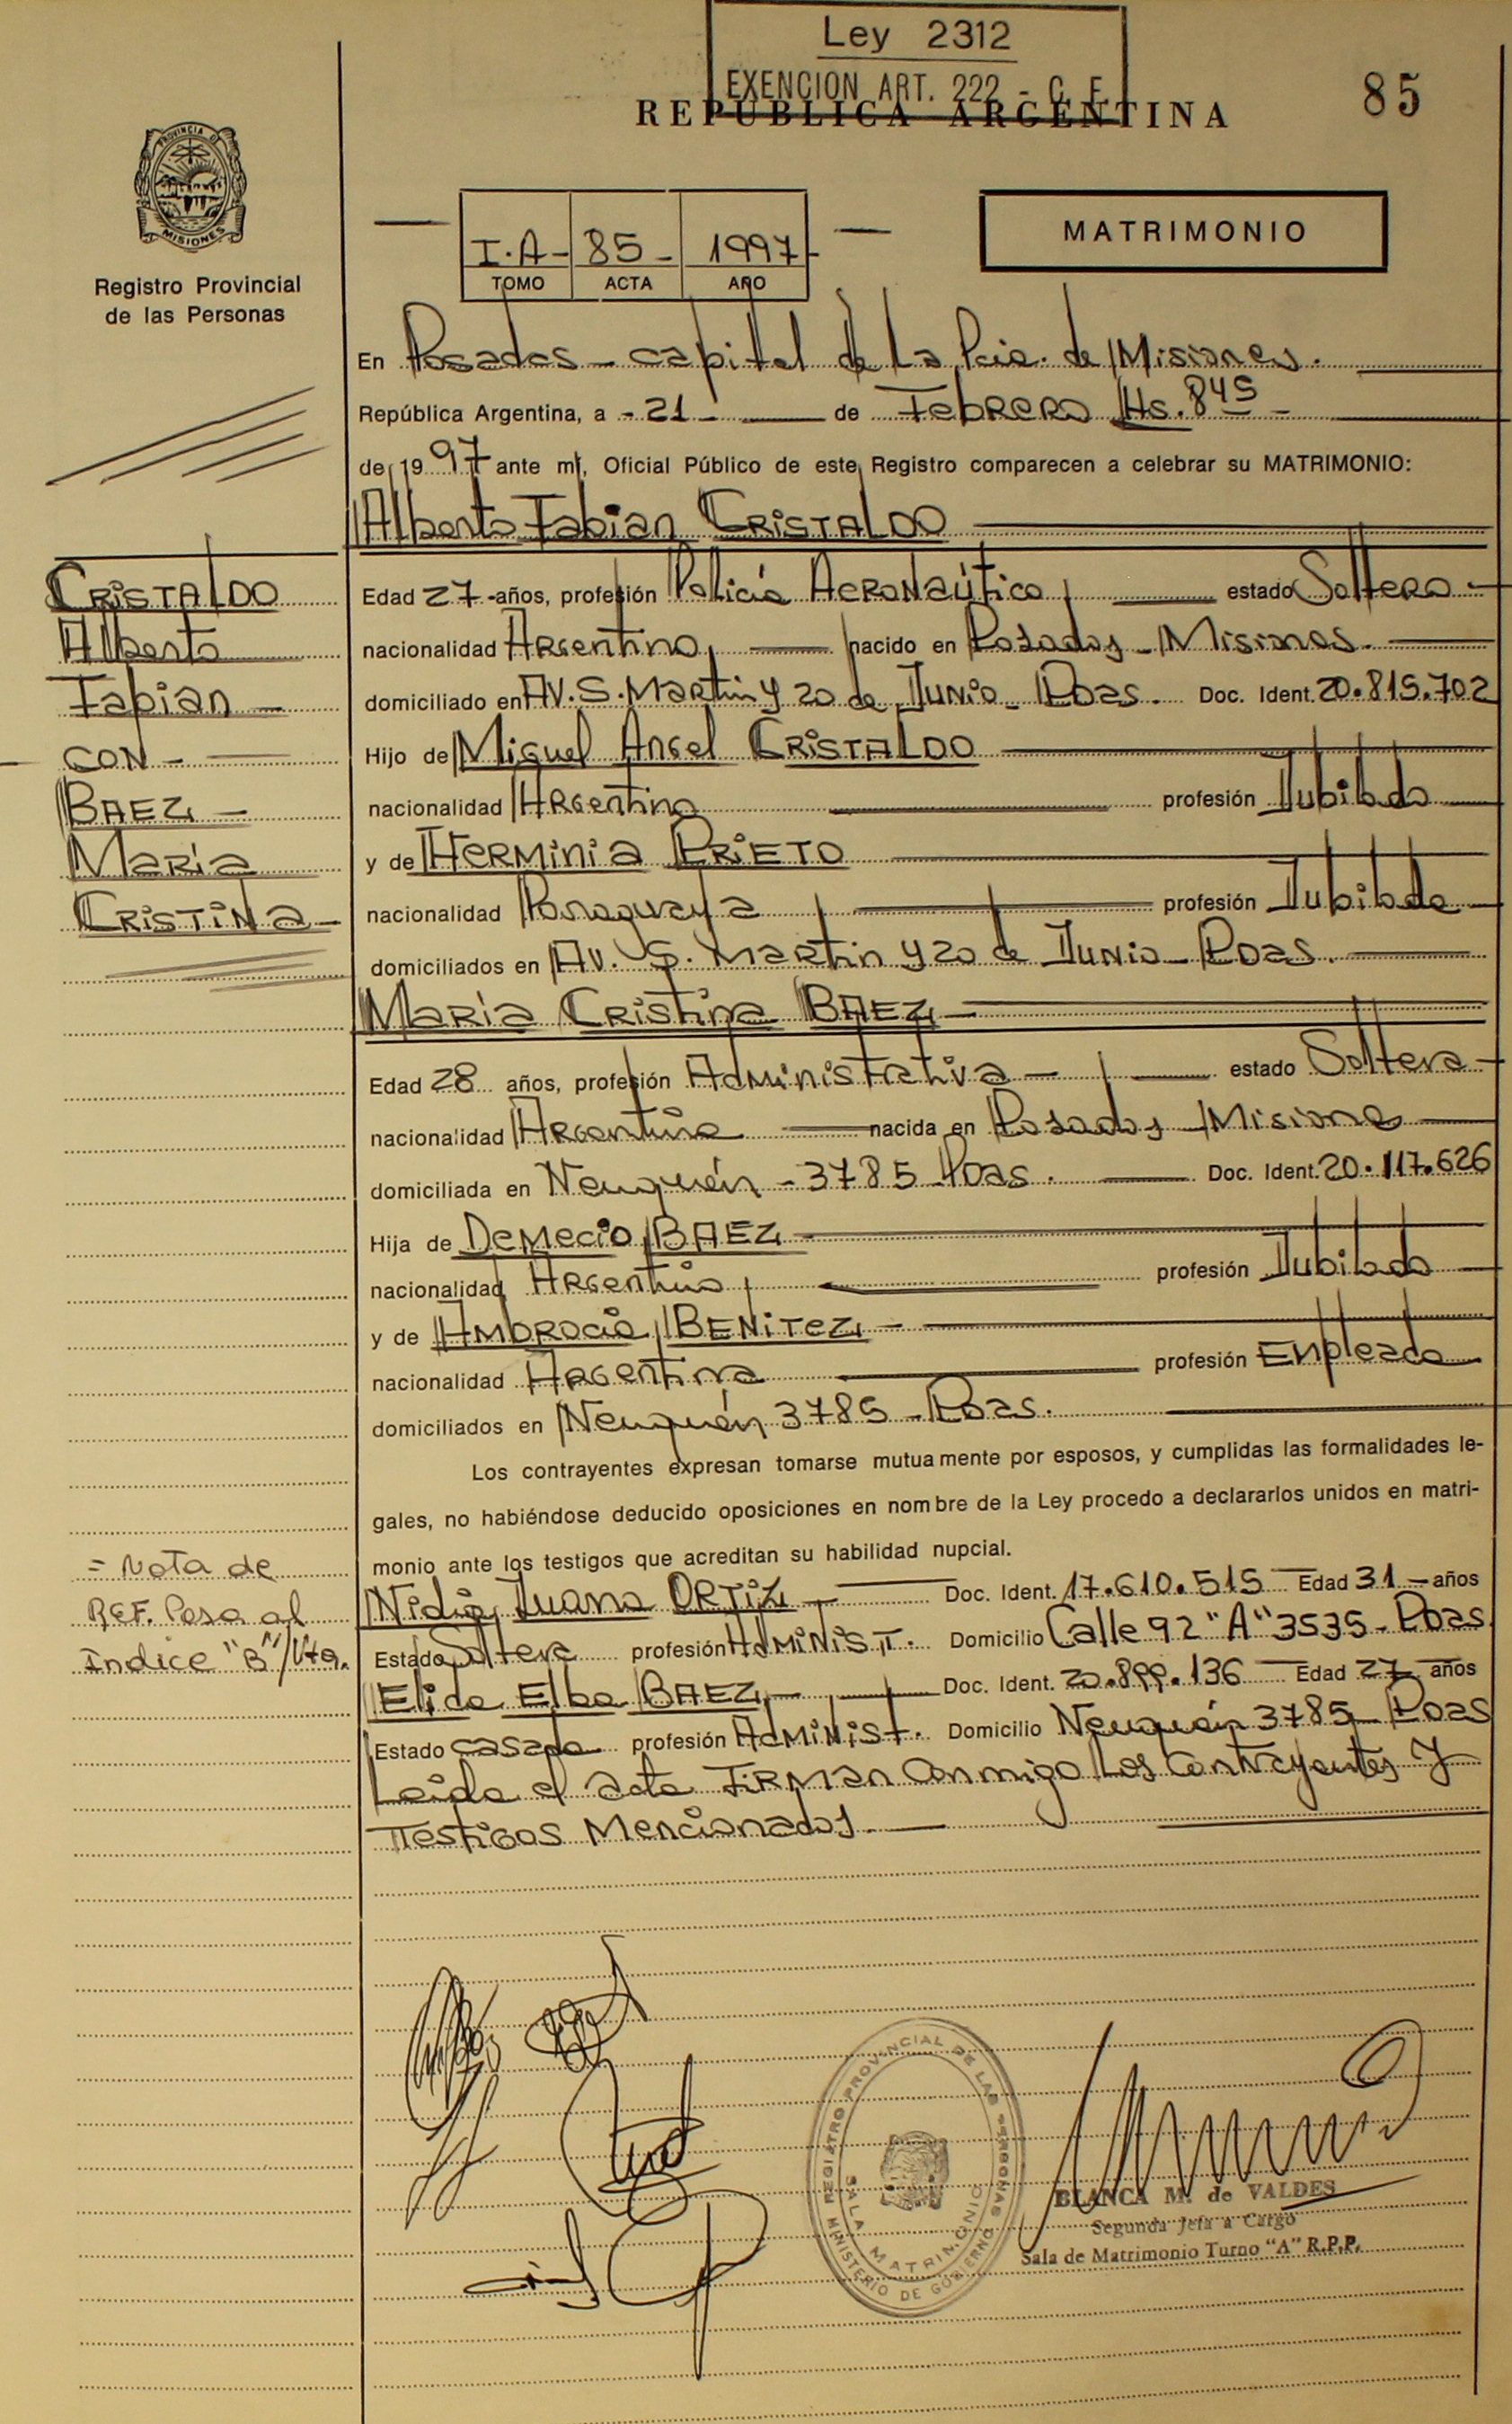 Ley 2312
EXENCION ART. 222 - C. F.
REPUBLICA ARGENTINA
85
PROVINCIA D
MISIONES
Registro Provincial
de las Personas
I.A - 85 - 1997 -
TOMO ACTA AÑO
MATRIMONIO
En Posadas - capital de La Pcia. de Misiones.
República Argentina, a - 21 - de Febrero Hs. 8 45 -
de 19 97 ante mí, Oficial Público de este Registro comparecen a celebrar su MATRIMONIO:
Alberto Fabian CRISTALDO
CRISTALDO
Alberto
Fabian -
CON -
BAEZ -
María
CRISTINA -
Edad 27 - años, profesión Policía Aeronaútico estado Soltero -
nacionalidad Argentino, nacido en Posadas - Misiones.
domiciliado en Av. S. Martin y 20 de Junio - Pdas. Doc. Ident. 20.815.702
Hijo de Miguel Angel CRISTALDO
nacionalidad Argentino profesión Jubilado
y de Herminia PRIETO
nacionalidad Paraguaya profesión Jubilada
domiciliados en Av. S. Martin y 20 de Junio - Pdas.
María Cristina BAEZ -
Edad 28 años, profesión Administrativa - estado Soltera -
nacionalidad Argentina nacida en Posadas - Misiones
domiciliada en Neuquén - 3785 - Pdas. Doc. Ident. 20.117.626
Hija de Demecio BAEZ
nacionalidad Argentino profesión Jubilado
y de Ambrocia BENITEZ -
nacionalidad Argentina profesión Empleada
domiciliados en Neuquén 3785 - Pdas.
Los contrayentes expresan tomarse mutuamente por esposos, y cumplidas las formalidades le-
gales, no habiéndose deducido oposiciones en nombre de la Ley procedo a declararlos unidos en matri-
monio ante los testigos que acreditan su habilidad nupcial.
= Nota de
REF. Pasa al
Indice "B"/Vta.
Nidia Juana ORTIZ - Doc. Ident. 17.610.515 Edad 31 - años
Estado Soltera profesión Administ. Domicilio Calle 92 "A" 3535 - Pdas.
Elida Elba BAEZ - Doc. Ident. 20.899.136 Edad 27 años
Estado casada profesión Administ. Domicilio Neuquén 3785 - Pdas
Leida el acta Firman Conmigo Los Contrayentes y
Testigos Mencionados.
REGISTRO PROVINCIAL DE LAS PERSONAS
SALA MATRIMONIO
MINISTERIO DE GOBIERNO
BLANCA M. de VALDES
Segunda Jefa a Cargo
Sala de Matrimonio Turno "A" R.P.P.